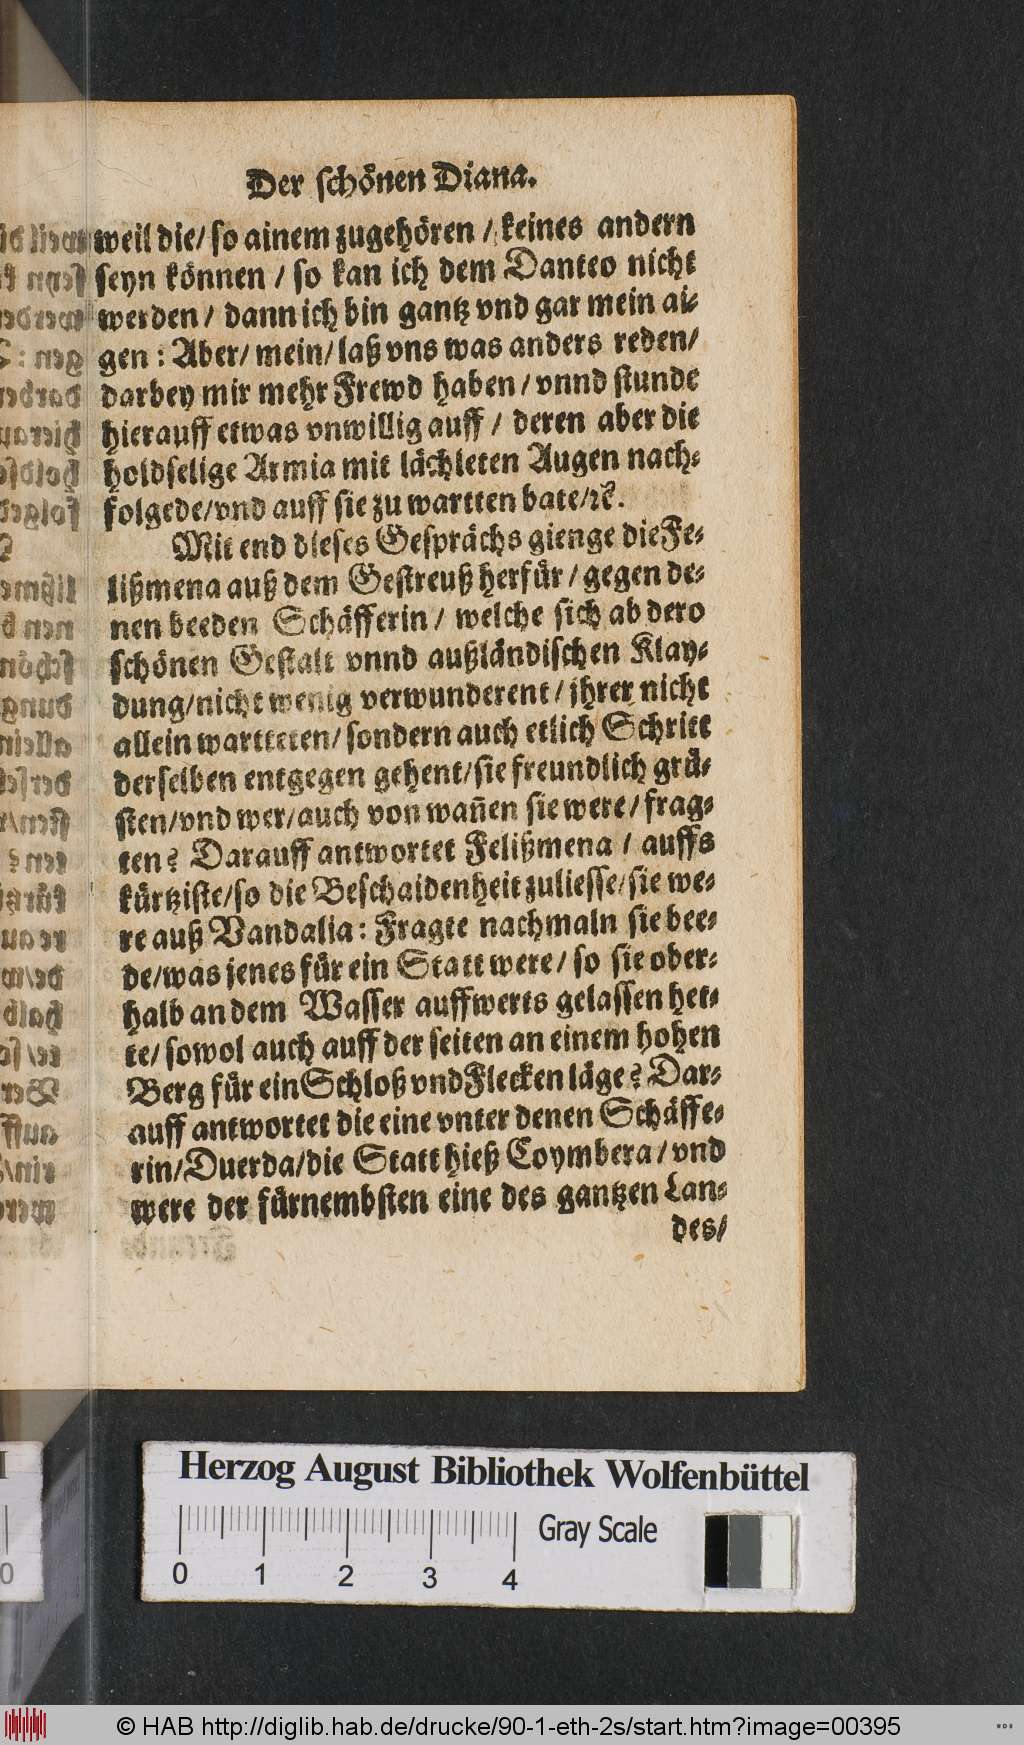 Der schönen Diana.
weil die/ so ainem zugehören / keines andern
seyn können / so kan ich dem Danteo nicht
werden / dann ich bin gantz vnd gar mein ai-
gen : Aber/ mein/ laß vns was anders reden/
darbey mir mehr Frewd haben / vnnd stunde
hierauff etwas vnwillig auff / deren aber die
holdselige Armia mit lächleten Augen nach-
folgede/vnd auff sie zu wartten bate/ꝛc.
Mit end dieses Gesprächs gienge die Fe-
lißmena auß dem Gestreuß herfür / gegen de-
nen beeden Schäfferin / welche sich ab dero
schönen Gestalt vnnd außländischen Klay-
dung/nicht wenig verwunderent / jhrer nicht
allein wartteten/ sondern auch etlich Schritt
derselben entgegen gehent/sie freundlich grü-
sten/vnd wer/auch von wañen sie were / frag-
ten? Darauff antwortet Felißmena / auffs
kürtziste/so die Beschaidenheit zuliesse/sie we-
re auß Vandalia : Fragte nachmaln sie bee-
de/was jenes für ein Statt were / so sie ober-
halb an dem Wasser auffwerts gelassen het-
te/ sowol auch auff der seiten an einem hohen
Berg für ein Schloß vnd Flecken läge? Dar-
auff antwortet die eine vnter denen Schäffe-
rin/Duerda/die Statt hieß Coymbera / vnd
were der fürnembsten eine des gantzen Lan-
des/
Herzog August Bibliothek Wolfenbüttel
Gray Scale
0 1 2 3 4
© HAB http://diglib.hab.de/drucke/90-1-eth-2s/start.htm?image=00395